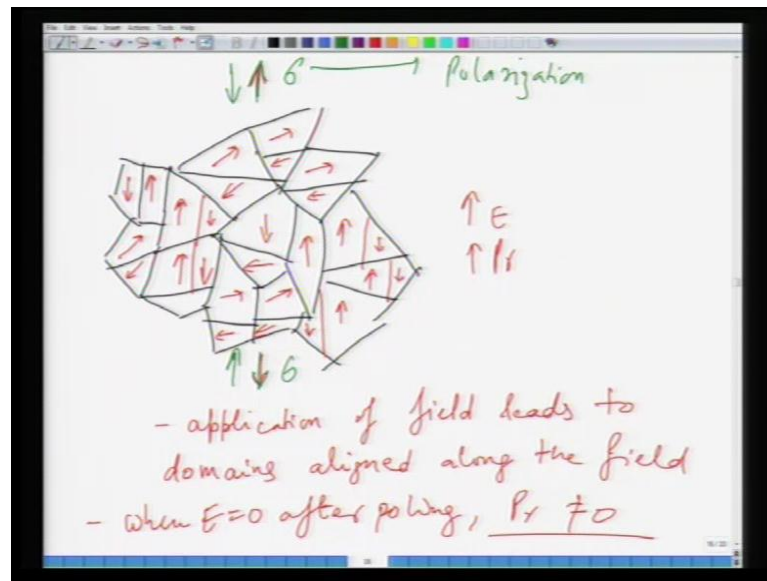 File Edit View Insert Actions Tools Help
σ → Polarization
E
Pr
σ
- application of field leads to
domains aligned along the field
- when E=0 after poling, Pr ≠ 0